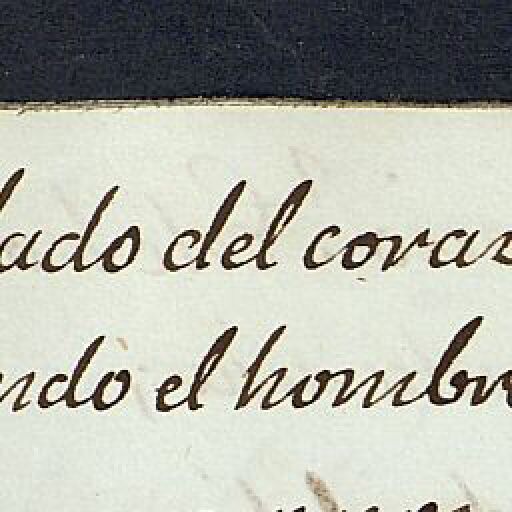 lado del coraz
ndo el hombr